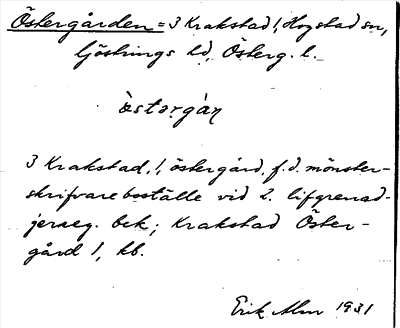 Östergården = 3 Krakstad !, Hogstad sn,
Göstrings hd, Österg. l.
östərgàɳ
3 Krakstad, !, östergård, f.d. mönster-
skrifvareboställe vid 2. lifgrenad-
jerreg. bek; Krakstad Öster-
gård 1, kb.
Erik Alm 1931